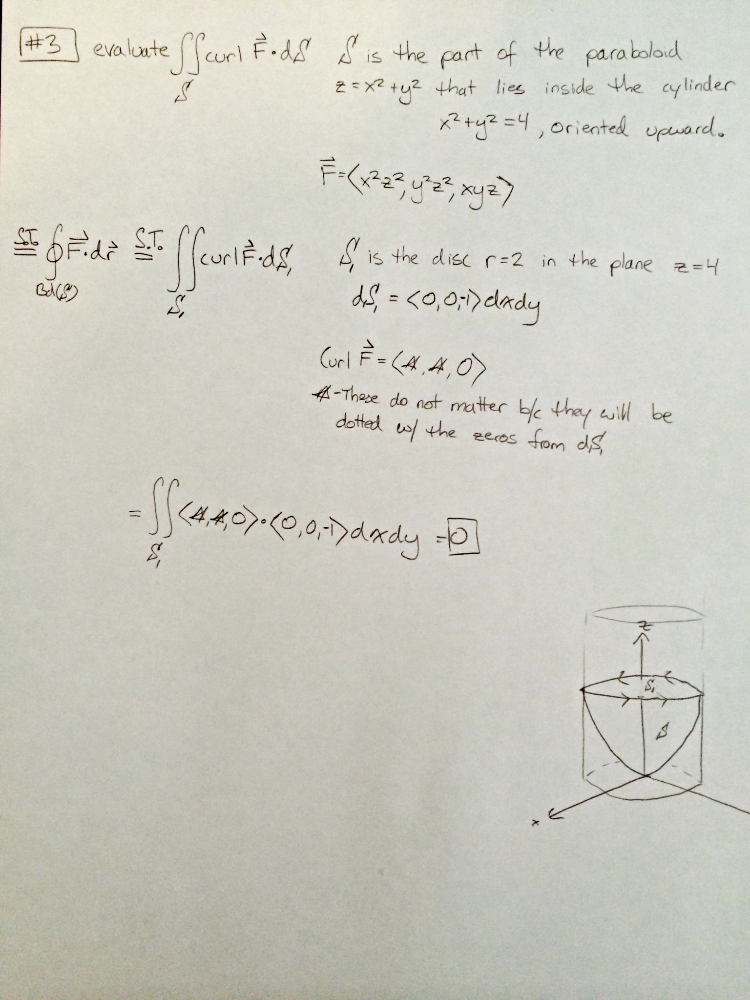 #3 evaluate ∬_S curl F⃗·dS S is the part of the paraboloid
z = x²+y² that lies inside the cylinder
x²+y²=4, oriented upward.
F⃗=⟨x²z², y²z², xyz⟩
S.T. = ∮_Bd(S) F⃗·dr⃗ S.T. = ∬_S₁ curl F⃗·dS₁ S₁ is the disc r=2 in the plane z=4
dS₁ = <0,0,-1>dxdy
Curl F⃗ = ⟨A, A, 0⟩
A-These do not matter b/c they will be
dotted w/ the zeros from dS₁
= ∬_S₁ ⟨A,A,0⟩·⟨0,0,-1⟩dxdy = 0
z
S₁
S
x